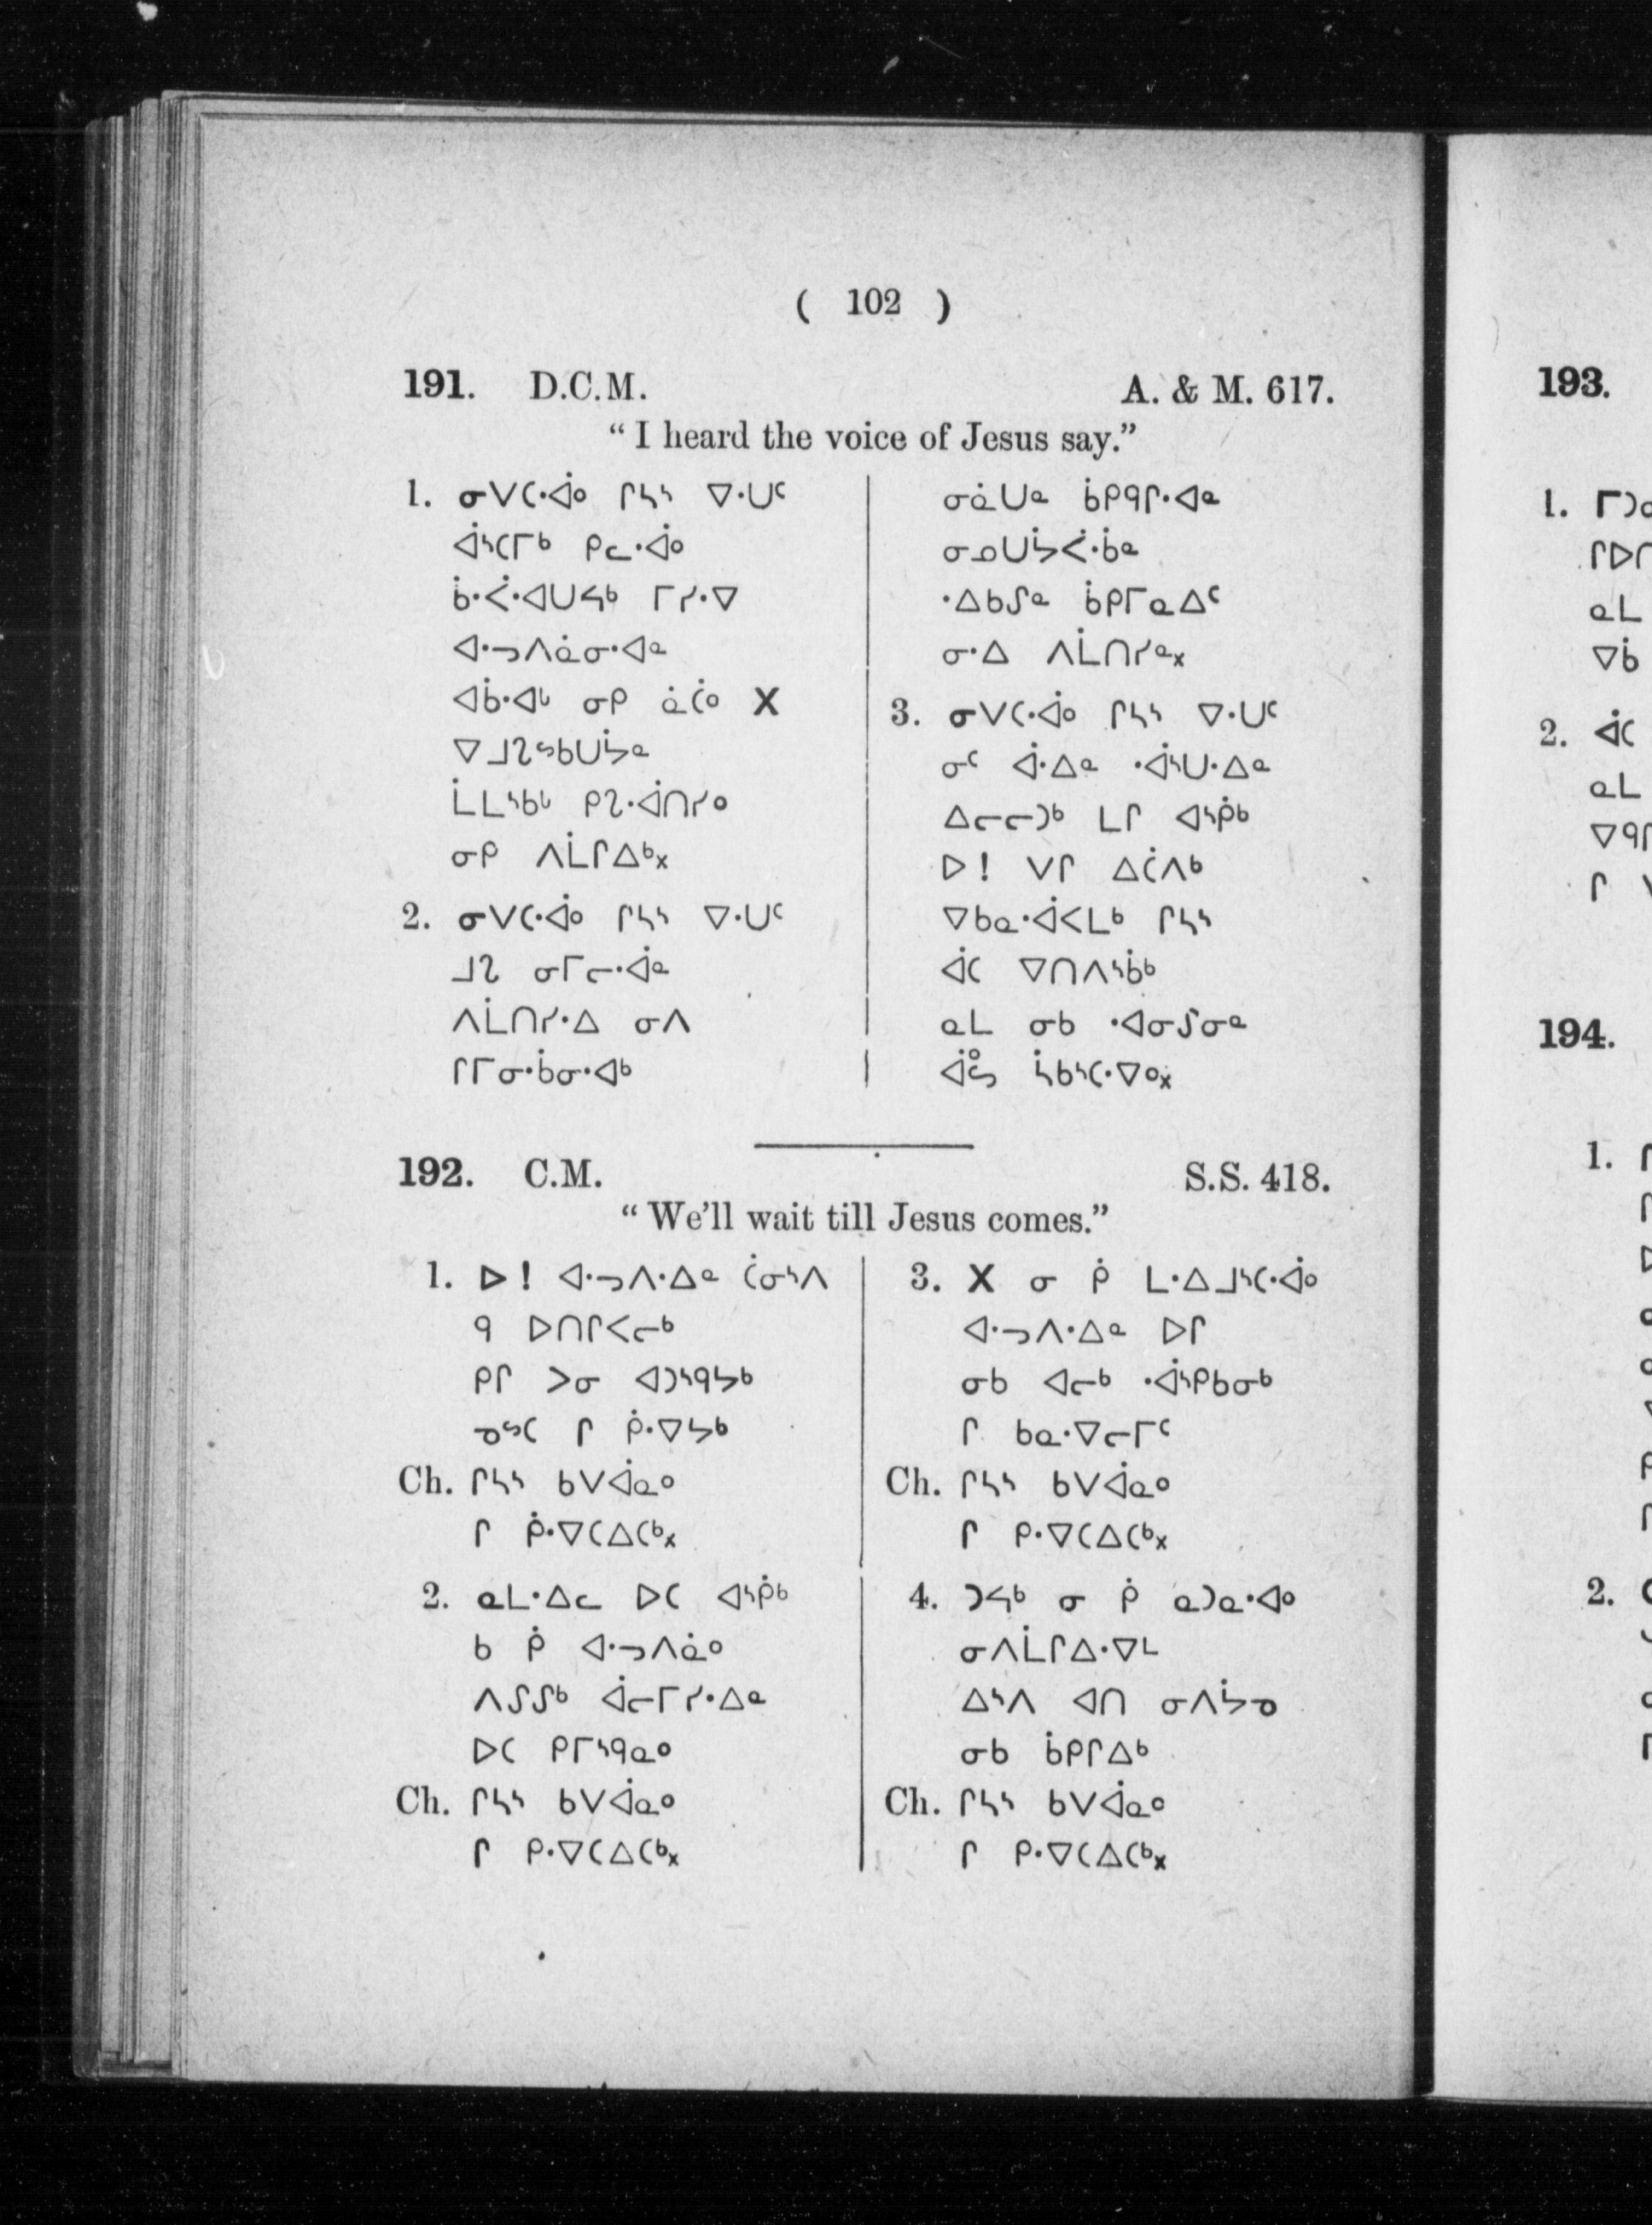 ( 102 )
191. D.C.M. A. & M. 617.
“ I heard the voice of Jesus say.”
1. ᓂᐯᑕᐧᐋᐤ ᒋᓴᔅ ᐁᐧᑌᑦ
ᐋᔅᑕᒥᒃ ᑭᓚᐧᐋᐤ
ᑳᐧᐹᐧᐊᑌᔭᒃ ᒥᓯᐧᐁ
ᐊᐧᓓᐱᓈᓂᐧᐊᓐ
ᐊᑳᐧᐊᒡ ᓂᑭ ᓈᑖᐤ X
ᐁᒧᔑᔥᑲᑌᔮᓐ
ᒫᒪᔅᑲᒡ ᑭᔑᐧᐋᑎᓯᐤ
ᓂᑭ ᐱᒫᒋᐃᒃ᙮
2. ᓂᐯᑕᐧᐋᐤ ᒋᓴᔅ ᐁᐧᑌᑦ
ᒧᔑ ᓂᒥᓕᐧᐋᓐ
ᐱᒫᑎᓯᐧᐃ ᓂᐱ
ᒋᒥᓂᐧᑳᓂᐧᐊᒃ
ᓂᓈᑌᓐ ᑳᑭᑫᒋᐧᐊᓐ
ᓂᓄᑌᔮᐹᐧᑳᓐ
ᐧᐃᑲᔑᓐ ᑳᑭᒥᓇᐃᑦ
ᓂᐧᐃ ᐱᒫᑎᓯᓐ᙮
3. ᓂᐯᑕᐧᐋᐤ ᒋᓴᔅ ᐁᐧᑌᑦ
ᓂᑦ ᐋᐧᐃᓐ ᐧᐋᔅᑌᐧᐃᓐ
ᐃᓕᓕᑐᒃ ᒪᒋ ᐊᔅᑮᒃ
ᐅ ! ᐯᒋ ᐃᑖᐱᒃ
ᐁᑲᓇᐧᐋᐸᒪᒃ ᒋᓴᔅ
ᐋᑕ ᐁᑎᐱᔅᑳᒃ
ᓇᒪ ᓂᑲ ᐧᐊᓂᔑᓂᓐ
ᐋᐤᔭ ᓵᑲᔅᑕᐧᐁᐤ᙮
192. C.M. S.S. 418.
“ We’ll wait till Jesus comes.”
1. ᐅ ! ᐊᐧᓓᐱᐧᐃᓐ ᑖᓂᔅᐱ
ᑫ ᐅᑎᒋᐸᓕᒃ
ᑭᒋ ᐳᓂ ᐊᑐᔅᑫᔭᒃ
ᓀᔥᑕ ᒋ ᑮᐧᐁᔭᒃ
Ch. ᒋᓴᔅ ᑲᐯᐋᓇᐤ
ᒋ ᑮᐧᐁᑕᐃᑕᒃ᙮
2. ᓇᒪᐧᐃᓚ ᐅᑕ ᐊᔅᑮᒃ
ᑲ ᑮ ᐊᐧᓓᐱᓈᐤ
ᐱᔑᔑᒃ ᐋᓕᒥᓯᐧᐃᓐ
ᐅᑕ ᑭᒥᔅᑫᓇᐤ
Ch. ᒋᓴᔅ ᑲᐯᐋᓇᐤ
ᒋ ᑭᐧᐁᑕᐃᑕᒃ᙮
3. X ᓂ ᑮ ᒪᐧᐃᒧᔅᑕᐧᐋᐤ
ᐊᐧᓓᐱᐧᐃᓐ ᐅᒋ
ᓂᑲ ᐊᓕᒃ ᐧᐋᔅᑭᑲᓂᒃ
ᒋ ᑲᓇᐧᐁᓕᒥᑦ
Ch. ᒋᓴᔅ ᑲᐯᐋᓇᐤ
ᒋ ᑭᐧᐁᑕᐃᑕᒃ᙮
4. ᑐᔭᒃ ᓂ ᑮ ᓇᑐᓇᐧᐊᐤ
ᓂᐱᒫᒋᐃᐧᐁᒻ
ᐃᔅᐱ ᐊᑎ ᓂᐱᔮᓀ
ᓂᑲ ᑳᑭᒋᐃᒃ
Ch. ᒋᓴᔅ ᑲᐯᐋᓇᐤ
ᒋ ᑭᐧᐁᑕᐃᑕᒃ᙮
193.
194.